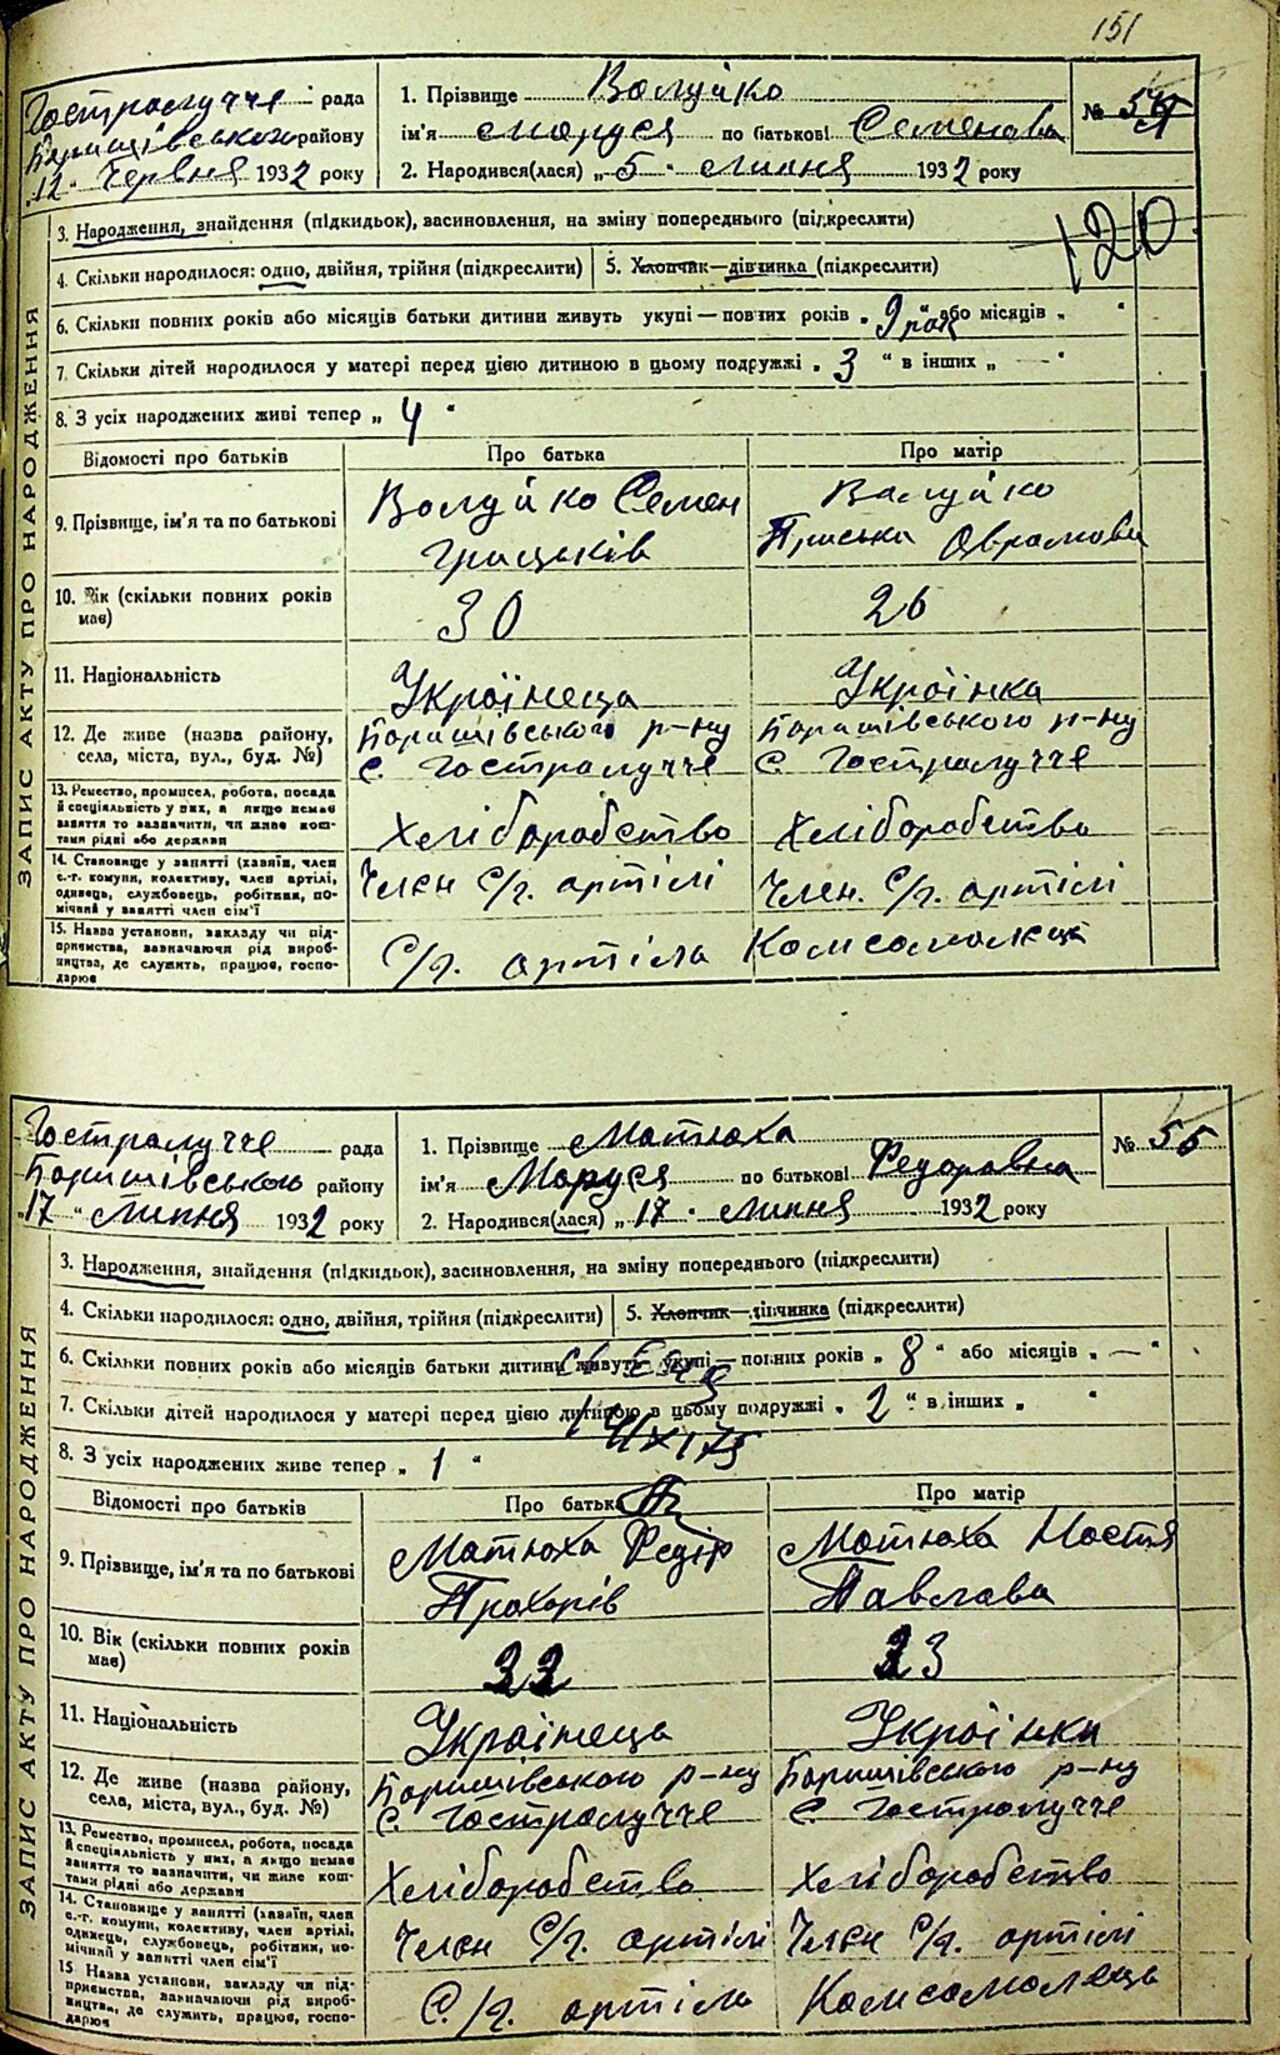 151
Гостролуччє рада
Баришівського району
"12" Червня 1932 року
1. Прізвище Валуйко
ім'я Маруся по батькові Семенова
2. Народився(лася) „5" Липня 1932 року
№ 54
120
ЗАПИС АКТУ ПРО НАРОДЖЕННЯ
3. Народження, знайдення (підкидьок), засиновлення, на зміну попереднього (підкреслити)
4. Скільки народилося: одно, двійня, трійня (підкреслити) 5. Хлопчик—дівчинка (підкреслити)
6. Скільки повних років або місяців батьки дитини живуть укупі — повних років „9 рок" або місяців „ "
7. Скільки дітей народилося у матері перед цією дитиною в цьому подружжі „3" в інших „—"
8. З усіх народжених живі тепер „4"
Відомості про батьків Про батька Про матір
9. Прізвище, ім'я та по батькові
Валуйко Семен
Грицьків
Валуйко
Приська Аврамова
10. Вік (скільки повних років
має)
30
26
11. Національність
Українець
Українка
12. Де живе (назва району,
села, міста, вул., буд. №)
Баришівського р-ну
с. Гостролуччє
Баришівського р-ну
с. Гостролуччє
13. Ремество, промисел, робота, посада
й спеціяльність у них, а якщо немає
заняття то зазначити, чи живе кош-
тами рідні або держави
Хліборобство
Хліборобство
14. Становище у занятті (хазяїн, член
с.-г. комуни, колективу, член артілі,
одинець, службовець, робітник, по-
мічний у занятті член сім'ї
Член с/г. артілі
Член. с/г. артілі
15. Назва установи, закладу чи під-
приємства, зазначаючи рід вироб-
ництва, де служить, працює, госпо-
дарює
С/г. артіль Комсомолець
Гостролуччє рада
Баришівського району
"17" Липня 1932 року
1. Прізвище Матюха
ім'я Маруся по батькові Федоровна
2. Народився(лася) „17" Липня 1932 року
№ 55
ЗАПИС АКТУ ПРО НАРОДЖЕННЯ
3. Народження, знайдення (підкидьок), засиновлення, на зміну попереднього (підкреслити)
4. Скільки народилося: одно, двійня, трійня (підкреслити) 5. Хлопчик—дівчинка (підкреслити)
6. Скільки повних років або місяців батьки дитини живуть укупі — повних років „8" або місяців „—"
7. Скільки дітей народилося у матері перед цією дитиною в цьому подружжі „2" в інших „ "
8. З усіх народжених живе тепер „1"
Відомості про батьків Про батька Про матір
9. Прізвище, ім'я та по батькові
Матюха Федір
Прохорів
Матюха Настя
Павлова
10. Вік (скільки повних років
має)
11. Національність
Українець
Українка
12. Де живе (назва району,
села, міста, вул., буд. №)
Баришівського р-ну
с. Гостролуччє
Баришівського р-ну
с. Гостролуччє
13. Ремество, промисел, робота, посада
й спеціяльність у них, а якщо немає
заняття то зазначити, чи живе кош-
тами рідні або держави
Хліборобство
Хліборобство
14. Становище у занятті (хазяїн, член
с.-г. комуни, колективу, член артілі,
одинець, службовець, робітник, по-
мічний у занятті член сім'ї
Член с/г. артілі
Член с/г. артілі
15 Назва установи, закладу чи під-
приємства, зазначаючи рід вироб-
ництва, де служить, працює, госпо-
дарює
С./г. артіль Комсомолець